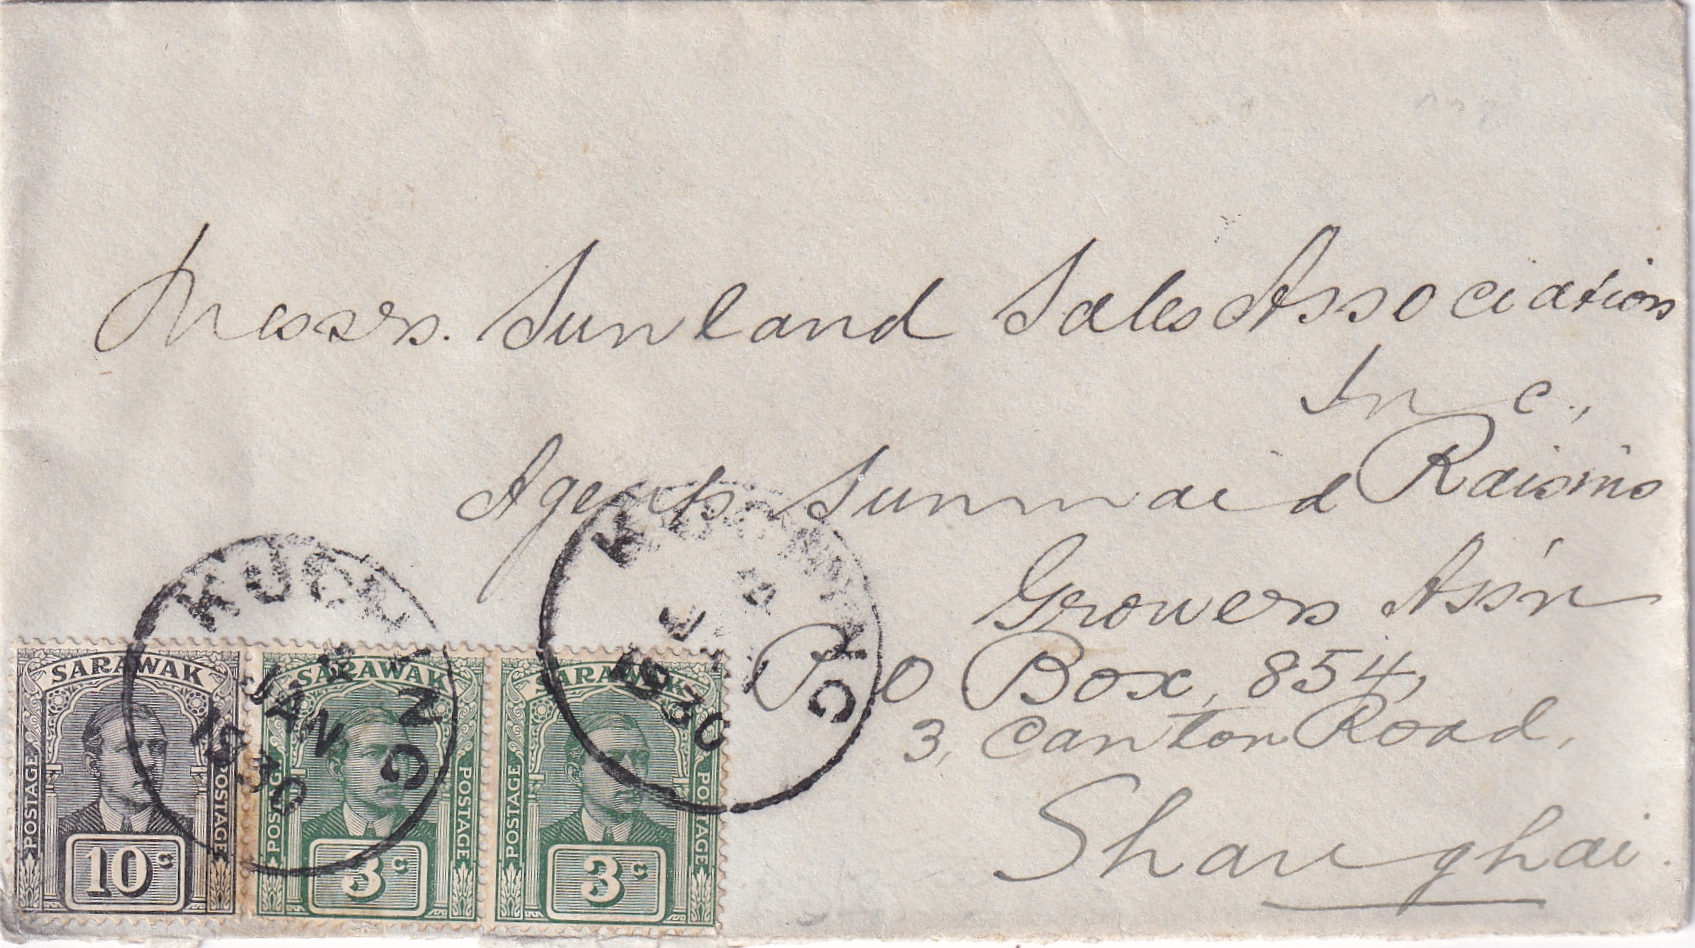 Messrs. Sunland Sales Association
Inc.,
Agents Sunmaid Raisins
Growers Ass'n
P O Box, 854,
3, Canton Road,
Shanghai.
KUCHING
JAN
1930
KUCHING
1930
SARAWAK
POSTAGE
POSTAGE
10c
SARAWAK
POSTAGE
POSTAGE
3c
SARAWAK
POSTAGE
POSTAGE
3c